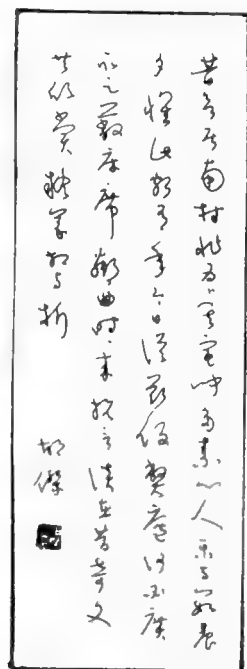 昔欲居南村非為卜其宅聞多素心人樂與數晨
夕懷此頗有年今日從茲役弊廬何必廣
取足蔽床席鄰曲時時來抗言談在昔奇文
共欣賞疑義相與析
胡傑